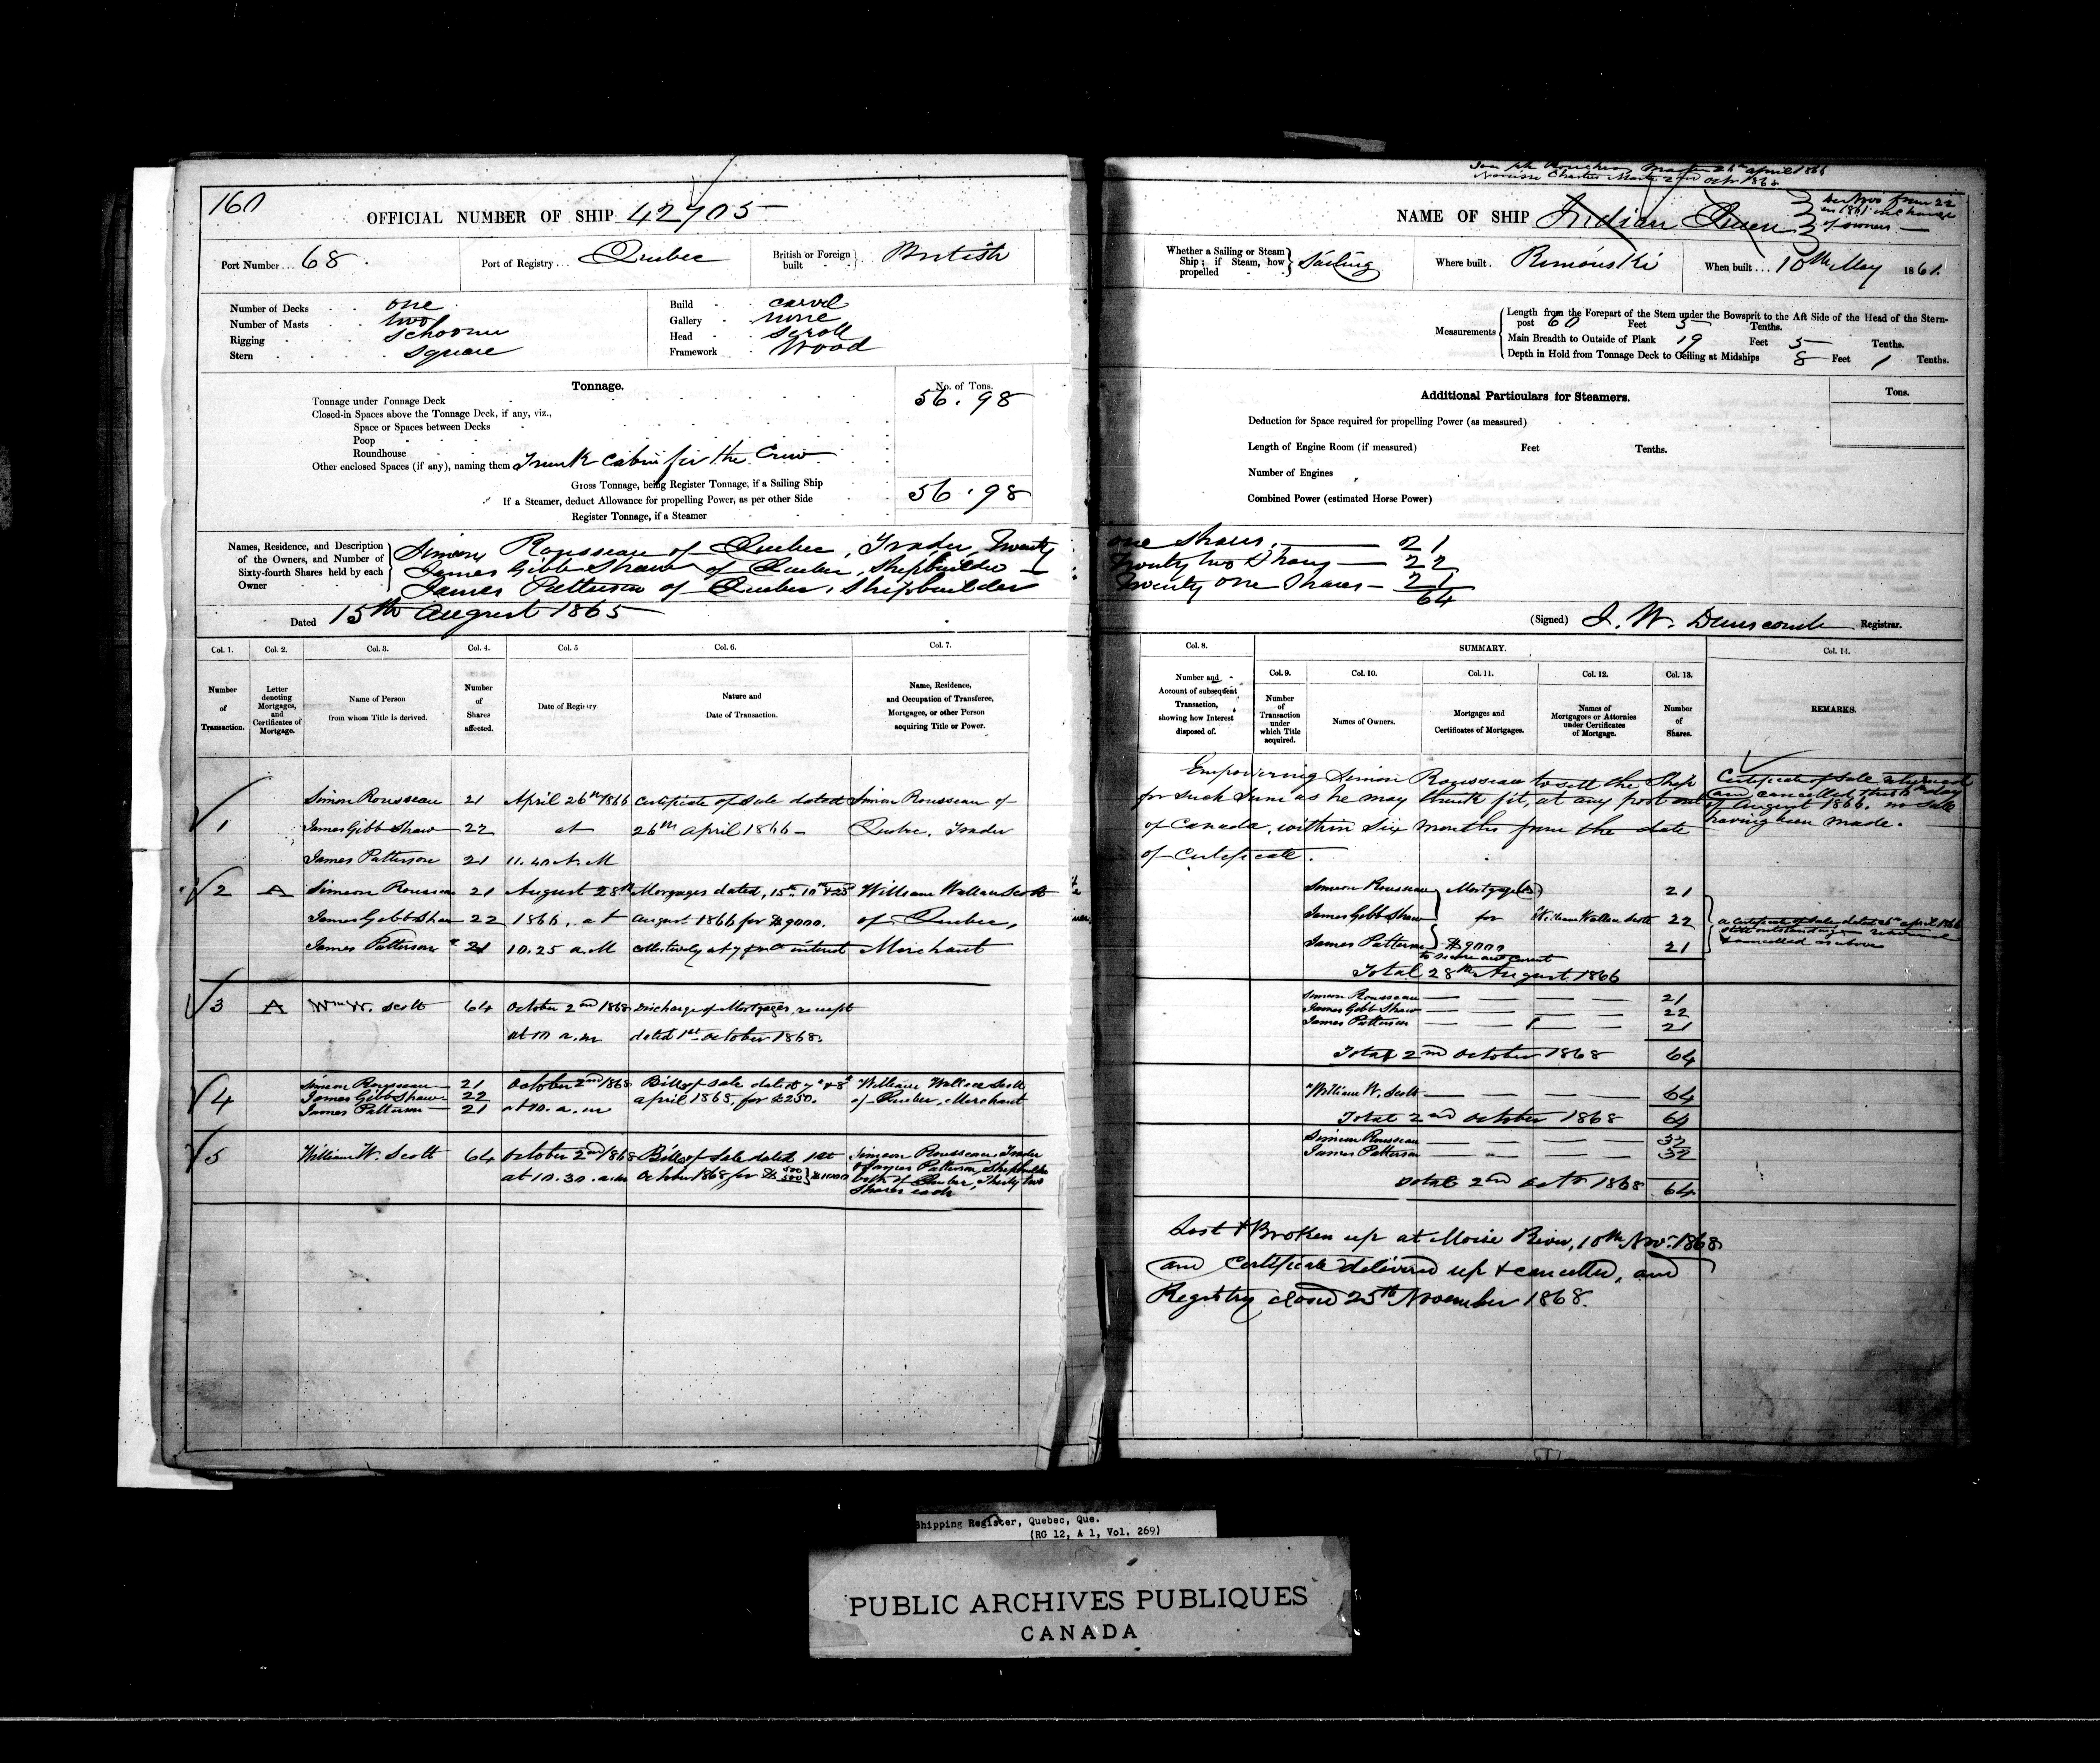 160
OFFICIAL NUMBER OF SHIP 42705
Port Number... 68.
Port of Registry... Quebec
British or Foreign built British
Number of Decks one
Number of Masts two
Rigging Schooner
Stern Square
Build carvel
Gallery none
Head Scroll
Framework Wood
Tonnage.
No. of Tons.
Tonnage under Tonnage Deck 56.98
Closed-in Spaces above the Tonnage Deck, if any, viz.,
Space or Spaces between Decks
Poop
Roundhouse
Other enclosed Spaces (if any), naming them Trunk cabin for the Crew
Gross Tonnage, being Register Tonnage, if a Sailing Ship 56.98
If a Steamer, deduct Allowance for propelling Power, as per other Side
Register Tonnage, if a Steamer
Names, Residence, and Description of the Owners, and Number of Sixty-fourth Shares held by each Owner
Simeon Rousseau of Quebec, Trader, Twenty
James Gibb Shaw of Quebec, Shipbuilder
James Patterson of Quebec, Shipbuilder
Dated 15th August 1865
Col. 1. Col. 2. Col. 3. Col. 4. Col. 5 Col. 6. Col. 7.
Number of Transaction.
Letter denoting Mortgages, and Certificates of Mortgage.
Name of Person from whom Title is derived.
Number of Shares affected.
Date of Registry
Nature and Date of Transaction.
Name, Residence, and Occupation of Transferee, Mortgagee, or other Person acquiring Title or Power.
Simeon Rousseau 21 April 26th 1866 Certificate of Sale dated Simeon Rousseau of
1 James Gibb Shaw 22 at 26th April 1866 - Quebec, Trader
James Patterson 21 11.40 A.M
2 A Simeon Rousseau 21 August 28th Mortgages dated, 15th 10th & 25 William Wallace Scott
James Gibb Shaw 22 1866. at August 1866 for $9000. of Quebec,
James Patterson 21 10.25 a.M collectively at 7 interest Merchant
3 A Wm W. Scott 64 October 2nd 1868 Discharge of Mortgages, receipt
at 10 a.m dated 1st October 1868.
4 Simeon Rousseau 21 October 2nd 1868 Bills of Sale dated 7th & 8th William Wallace Scott
James Gibb Shaw 22 at 10. a.m April 1868, for £250. of Quebec, Merchant
James Patterson 21
5 William W. Scott 64 October 2nd 1868 Bills of Sale dated 1st Simeon Rousseau Trader
at 10.30. a.m October 1868 for $ 500 500 } $1000 & James Patterson, Shipbuilder
both of Quebec, Thirty two
Shares each
Master 26th April 1866
Narcisse Master 2nd Octr 1868
NAME OF SHIP Indian Queen
in 1861
of owners
Whether a Sailing or Steam Ship; if Steam, how propelled Sailing
Where built. Rimouski
When built... 10th May 1861.
Measurements
Length from the Forepart of the Stem under the Bowsprit to the Aft Side of the Head of the Stern-
post 60 Feet 5 Tenths.
Main Breadth to Outside of Plank 19 Feet 5 Tenths.
Depth in Hold from Tonnage Deck to Ceiling at Midships 8 Feet 1 Tenths.
Additional Particulars for Steamers.
Tons.
Deduction for Space required for propelling Power (as measured)
Length of Engine Room (if measured) Feet Tenths.
Number of Engines
Combined Power (estimated Horse Power)
one Shares. 21
Twenty two Shares 22
Twenty one Shares - 21
64
(Signed) J. W. Dunscomb Registrar.
Col. 8. SUMMARY. Col. 14.
Col. 9. Col. 10. Col. 11. Col. 12. Col. 13.
Number and Account of subsequent Transaction, showing how Interest disposed of.
Number of Transaction under which Title acquired.
Names of Owners.
Mortgages and Certificates of Mortgages.
Names of Mortgagees or Attornies under Certificates of Mortgage.
Number of Shares.
REMARKS.
Empowering Simeon Rousseau to sell the Ship
for such Sum as he may think fit, at any port out
of Canada, within Six months from the date
of Certificate.
Certificate of Sale returned
and cancelled this day
of August 1866. no sale
having been made.
Simeon Rousseau Mortgage(s) 21
James Gibb Shaw for William Wallace Scott 22
James Patterson $9000 21
to secure acct current
Total 28th August 1866
a Certificate of Sale dated 26th April 1866
still outstanding returned
& cancelled as above
Simeon Rousseau 21
James Gibb Shaw 22
James Patterson 21
Total 2nd October 1868 64
William W. Scott 64
Total 2nd October 1868 64
Simeon Rousseau 32
James Patterson 32
Total 2nd Octr 1868 64
Lost & Broken up at Moisie River, 10th Novr. 1868
and Certificate delivered up & cancelled, and
Registry closed 25th November 1868.
Shipping Register, Quebec, Que.
(RG 12, A 1, Vol. 269)
PUBLIC ARCHIVES PUBLIQUES
CANADA